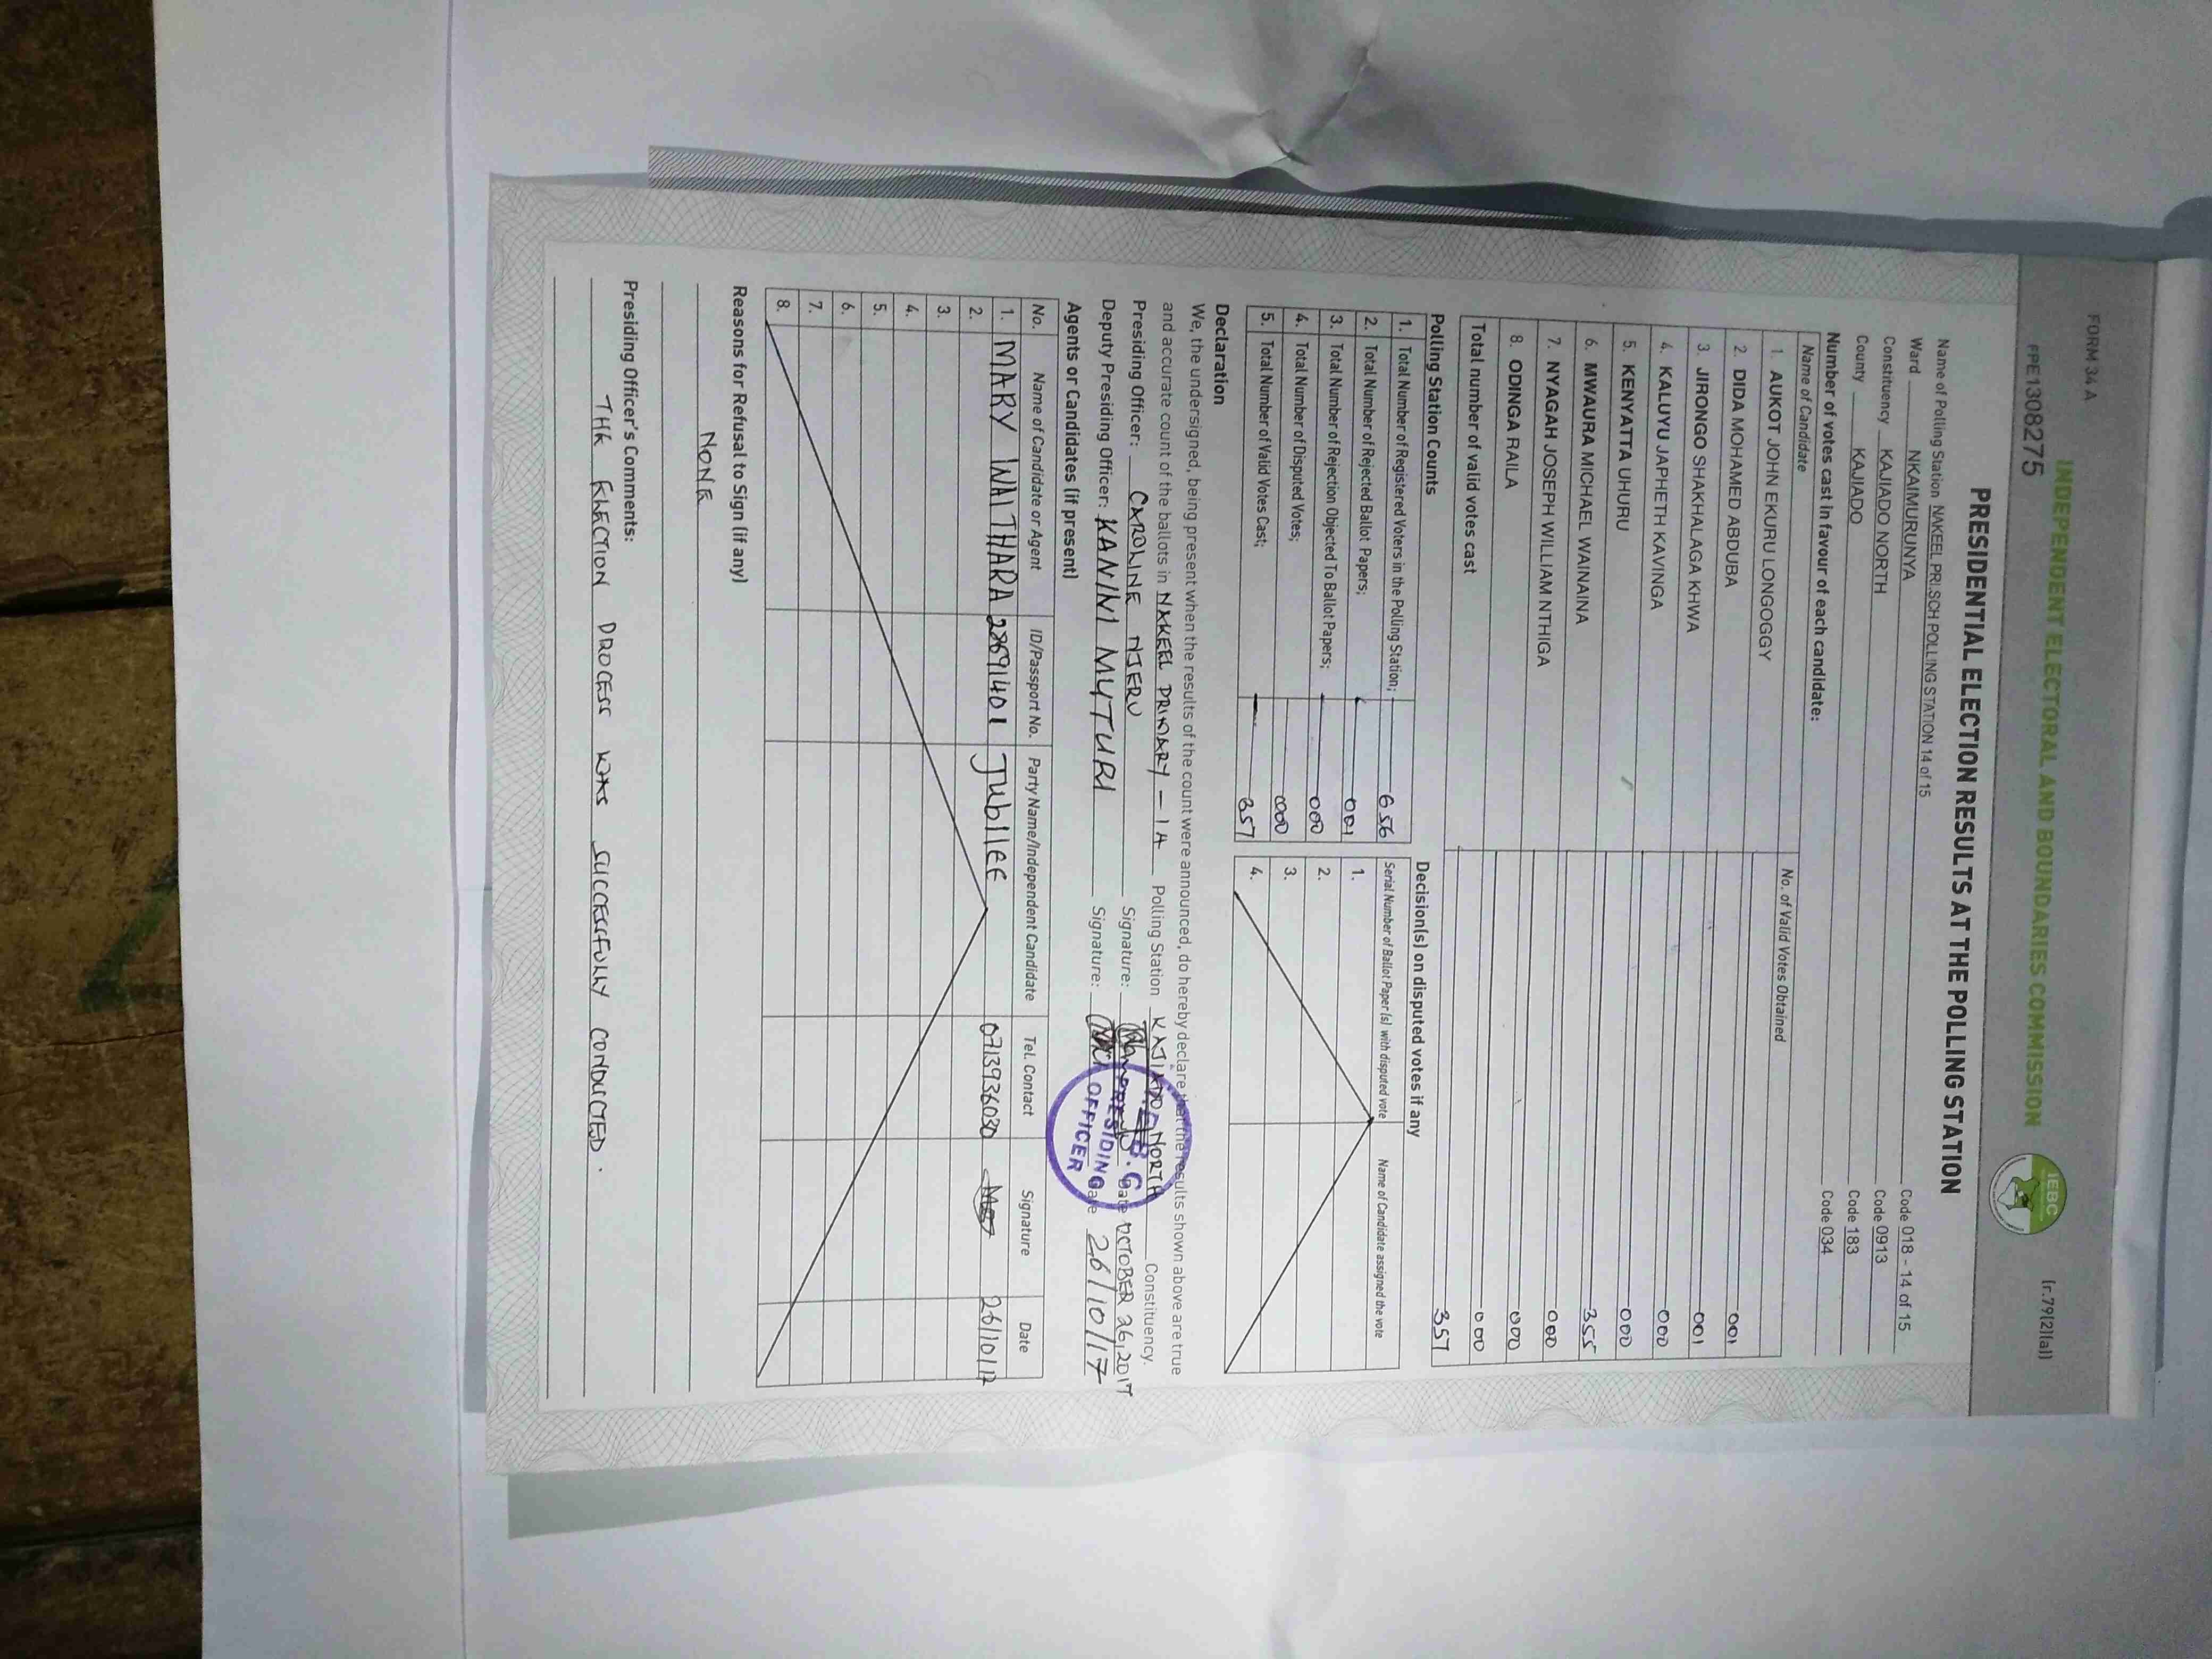 FORM 34 A
(r.79(2)(a))
INDEPENDENT ELECTORAL AND BOUNDARIES COMMISSION
IEBC
FPE1308275
PRESIDENTIAL ELECTION RESULTS AT THE POLLING STATION
Name of Polling Station NAKEEL PRI.SCH POLLING STATION 14 of 15 Code 018 - 14 of 15
Ward NKAIMURUNYA Code 0913
Constituency KAJIADO NORTH Code 183
County KAJIADO Code 034
Number of votes cast in favour of each candidate:
Name of Candidate No. of Valid Votes Obtained
1. AUKOT JOHN EKURU LONGOGGY 001
2. DIDA MOHAMED ABDUBA 001
3. JIRONGO SHAKHALAGA KHWA 000
4. KALUYU JAPHETH KAVINGA 000
5. KENYATTA UHURU 355
6. MWAURA MICHAEL WAINAINA 000
7. NYAGAH JOSEPH WILLIAM NTHIGA 000
8. ODINGA RAILA 000
Total number of valid votes cast 357
Polling Station Counts
1. Total Number of Registered Voters in the Polling Station; 656
2. Total Number of Rejected Ballot Papers; 001
3. Total Number of Rejection Objected To Ballot Papers; 000
4. Total Number of Disputed Votes; 000
5. Total Number of Valid Votes Cast; 357
Decision(s) on disputed votes if any
Serial Number of Ballot Paper (s) with disputed vote Name of Candidate assigned the vote
1.
2.
3.
4.
Declaration
We, the undersigned, being present when the results of the count were announced, do hereby declare that the results shown above are true
and accurate count of the ballots in NAKEEL PRIMARY - 1A Polling Station KAJIADO NORTH Constituency.
Presiding Officer: CAROLINE NJERU Signature: Date OCTOBER 26, 2017
Deputy Presiding Officer: KANINI MUTURI Signature: Date 26/10/17
PRESIDING
OFFICER
Agents or Candidates (if present)
No. Name of Candidate or Agent ID/Passport No. Party Name/Independent Candidate Tel. Contact Signature Date
1. MARY WAITHARA 28691401 JUBILEE 0713936030 26/10/17
2.
3.
4.
5.
6.
7.
8.
Reasons for Refusal to Sign (if any)
NONE
Presiding Officer's Comments:
THE ELECTION PROCESS WAS SUCCESSFULLY CONDUCTED.